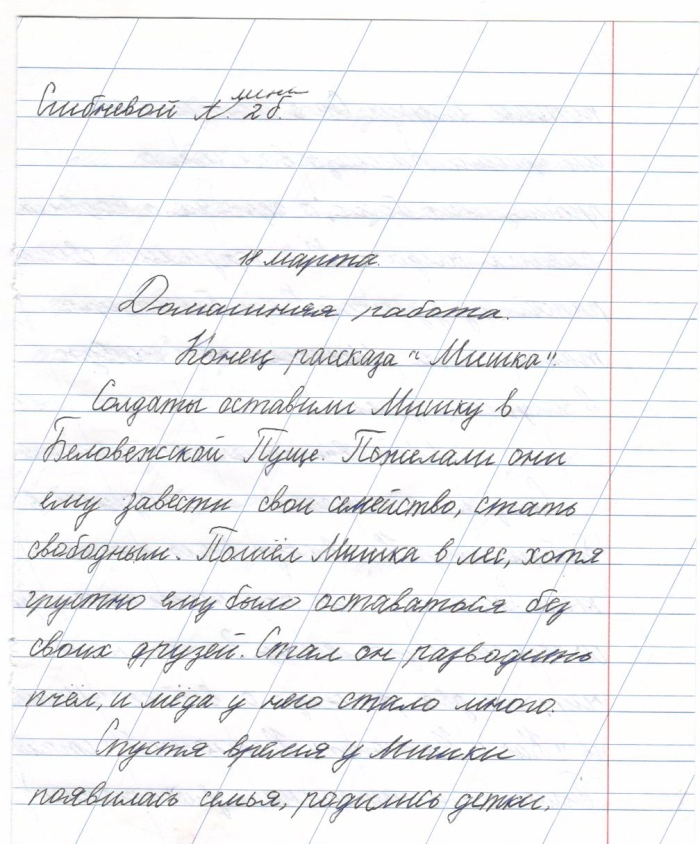 Сшибневой А. 2б.
мини
18 марта.
Домашняя работа.
Конец рассказа "Мишка".
Солдаты оставили Мишку в
Беловежской Пуще. Пожелали они
ему завести свои семейство, стать
свободным. Пошёл Мишка в лес, хотя
грустно ему было оставаться без
своих друзей. Стал он разводить
пчёл, и мёда у него стало много.
Спустя время у Мишки
появилась семья, родились детки.